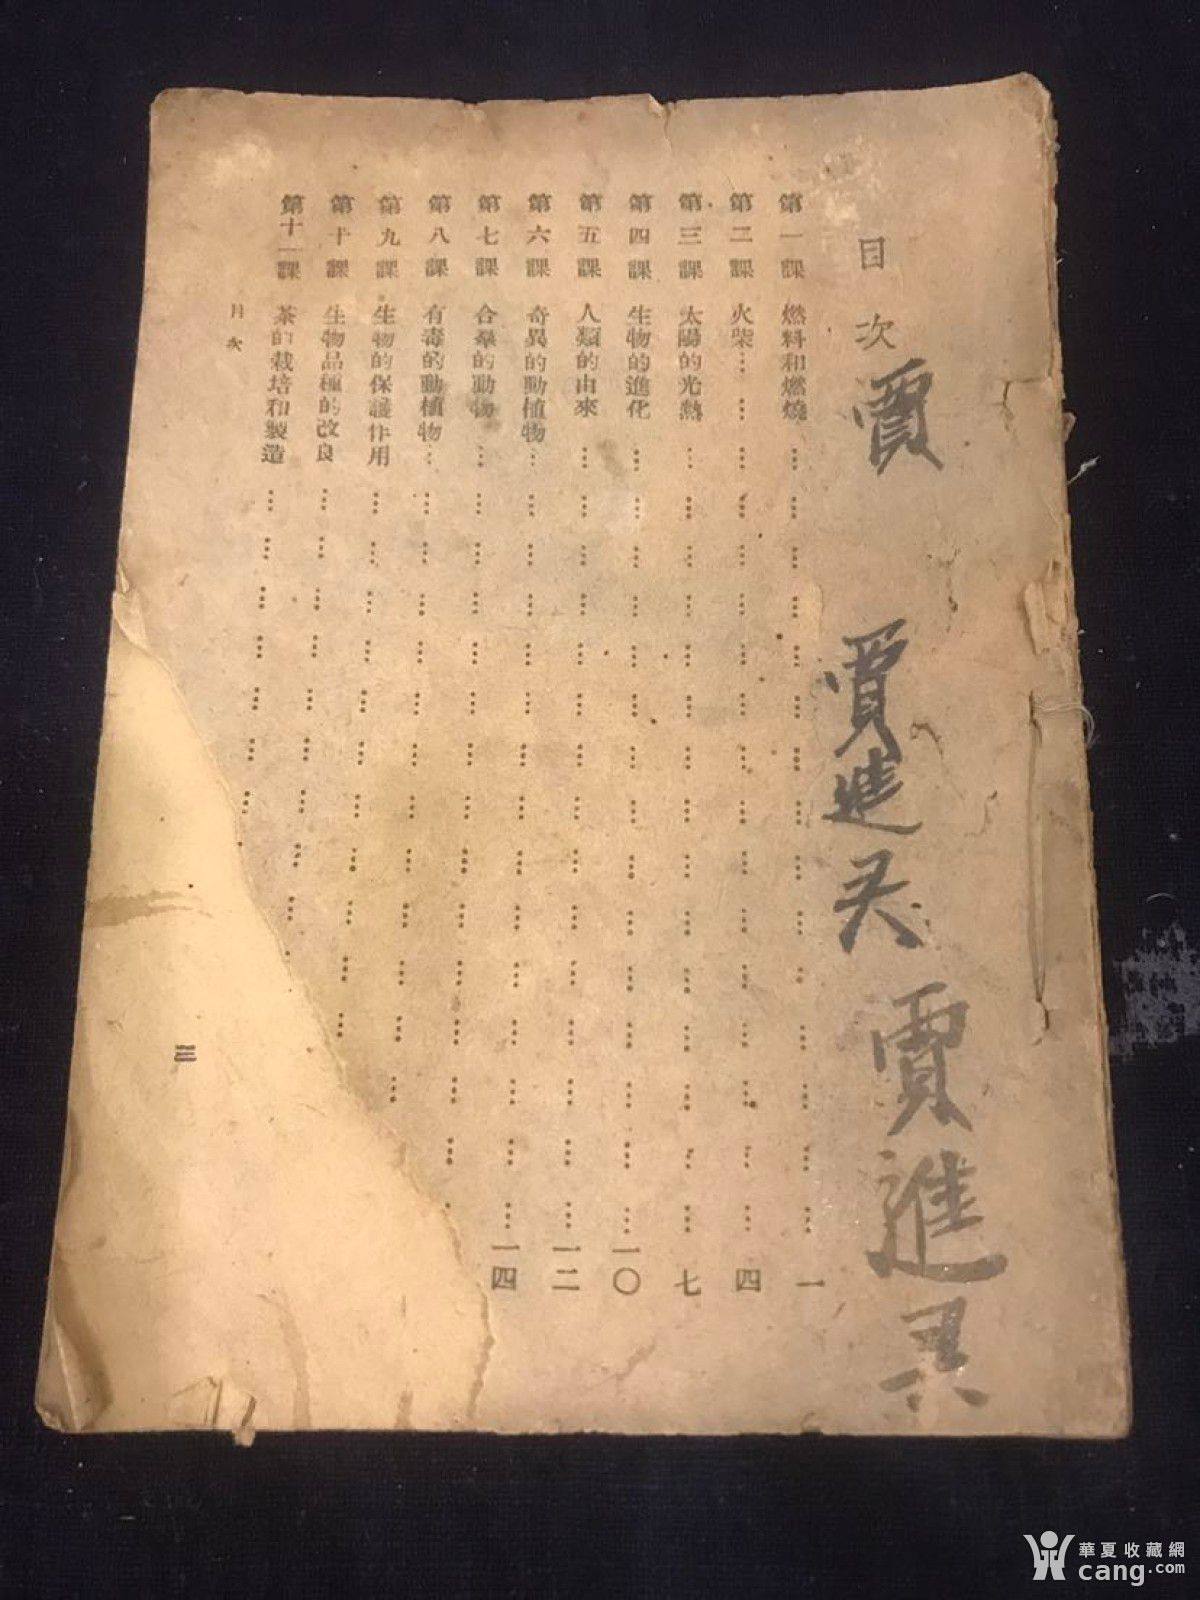 目次
賈
賈進
賈進
第一課 燃料和燃燒……一
第二課 火柴……四
第三課 太陽的光熱……七
第四課 生物的進化……一〇
第五課 人類的由來……一二
第六課 奇異的動植物……一四
第七課 合羣的動物……
第八課 有毒的動植物……
第九課 生物的保護作用……
第十課 生物品種的改良……
第十一課 茶的栽培和製造……
目次
華夏收藏網
cang.com